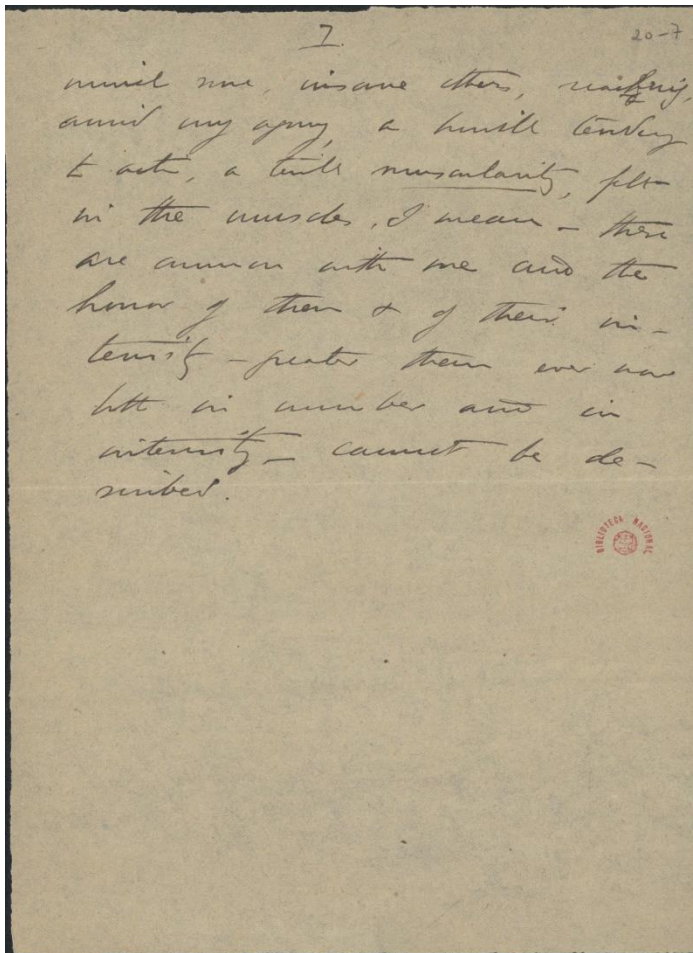 7.
20-7
criminal some, insane others, reaching,
amid my agony, a horrible tendency
to action, a terrible muscularity, felt
in the muscles, I mean — these
are common with me and the
horror of them & of their in-
tensity — greater than ever now
both in number and in
intensity — cannot be de-
scribed.
BIBLIOTECA NACIONAL